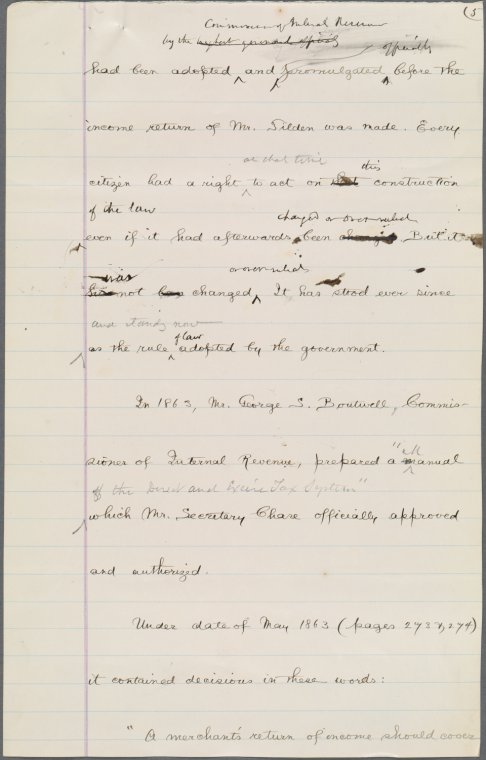 (5
Commissioner of Internal Revenue
by the highest government officials officially
had been adopted and promulgated before the
income return of Mr. Tilden was made. Every
at that time this
citizen had a right to act on that construction
of the law changed or overruled
even if it had afterwards been changed. But it
was or overruled
has not been changed, It has stood ever since
and stands now
of law
as the rule adopted by the government.
In 1863, Mr. George S. Boutwell, Commis-
sioner of Internal Revenue, prepared a "manual
of the Direct and Excise Tax System"
which Mr. Secretary Chase officially approved
and authorized.
Under date of May 1863 (pages 273 & 274)
it contained decisions in these words:
"A merchant's return of income should cover